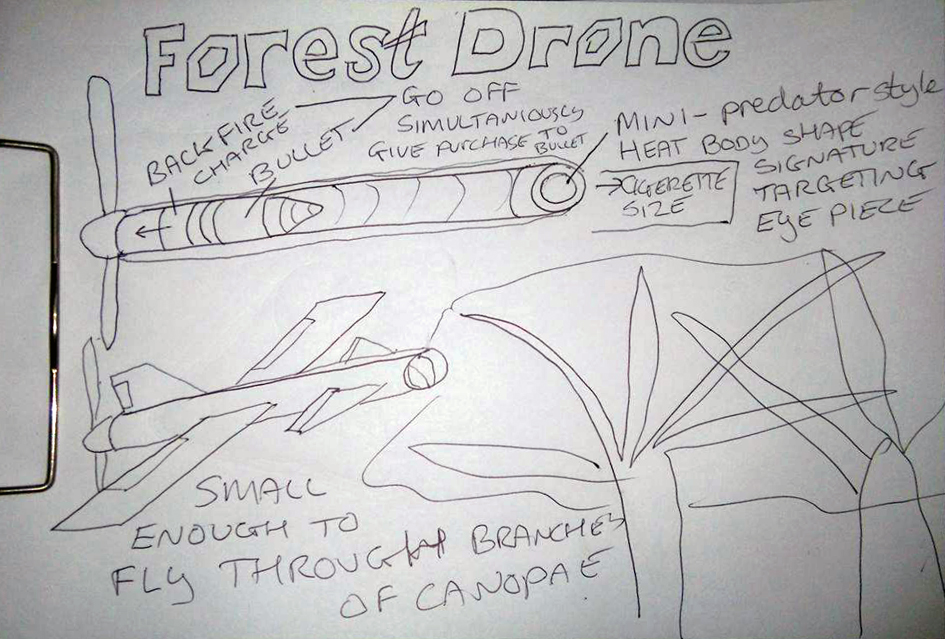 Forest Drone
BACKFIRE
CHARGE
BULLET
GO OFF
SIMULTANIOUSLY
GIVE PURCHASE TO
BULLET
MINI-predator style
HEAT BODY SHAPE
SIGNATURE
TARGETING
EYE PIECE
CIGERETTE
SIZE
SMALL
ENOUGH TO
FLY THROUGH BRANCHES
OF CANOPAE